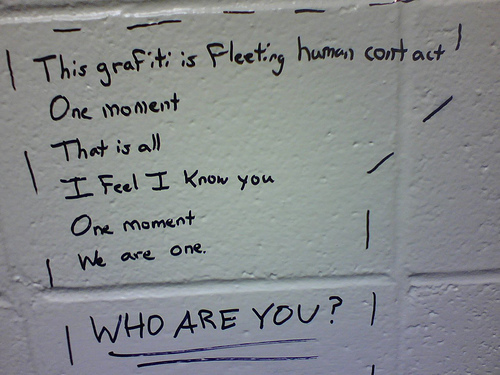 This grafiti is Fleeting human contact
One moment
That is all
I Feel I Know you
One moment
We are one.
WHO ARE YOU?